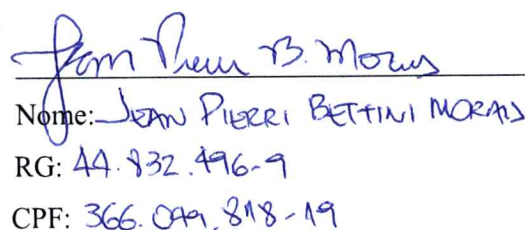 Jean Pierri B. Morais
Nome: JEAN PIERRI BETTINI MORAIS
RG: 44.832.496-9
CPF: 366.099.818-19